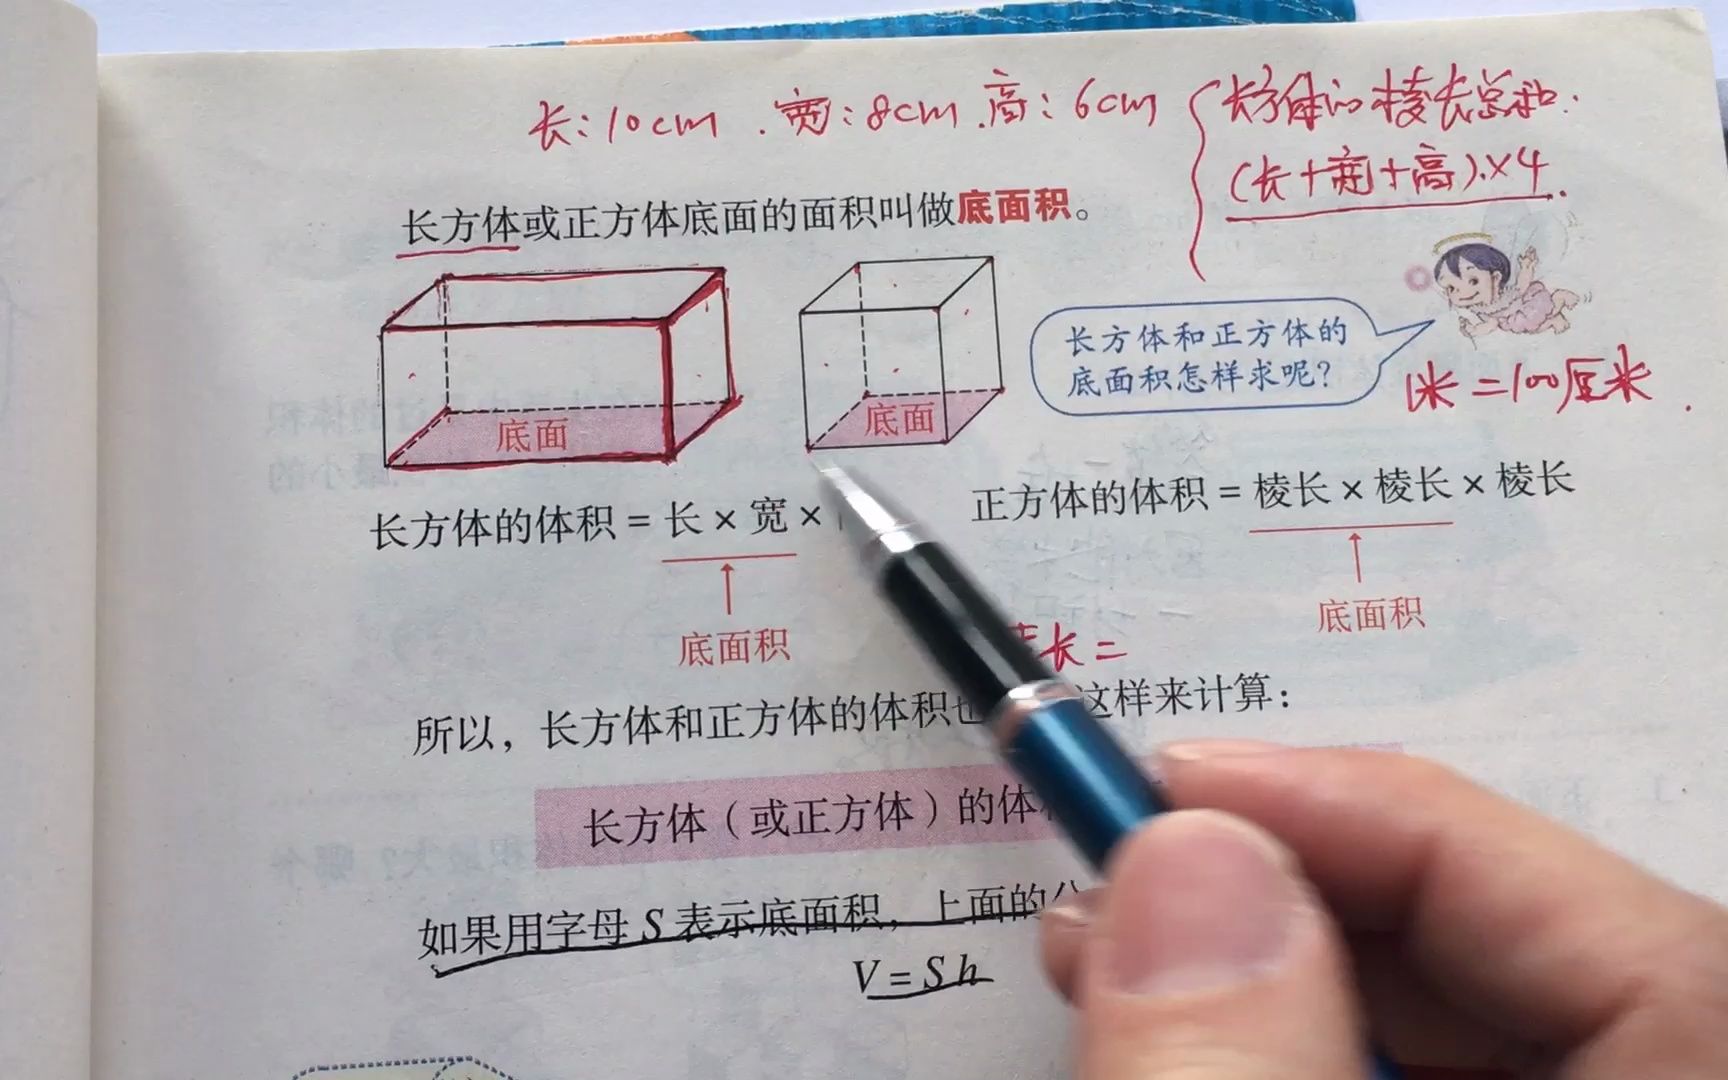 长：10cm . 宽：8cm . 高：6cm
长方体的棱长总和.
(长+宽+高)×4.
长方体或正方体底面的面积叫做底面积。
长方体和正方体的
底面积怎样求呢？
1米=100厘米.
底面
底面
长方体的体积 = 长 × 宽 ×
正方体的体积 = 棱长 × 棱长 × 棱长
底面积
底面积
长=
所以，长方体和正方体的体积也 这样来计算：
长方体（或正方体）的体
如果用字母 S 表示底面积，上面的
V = S h